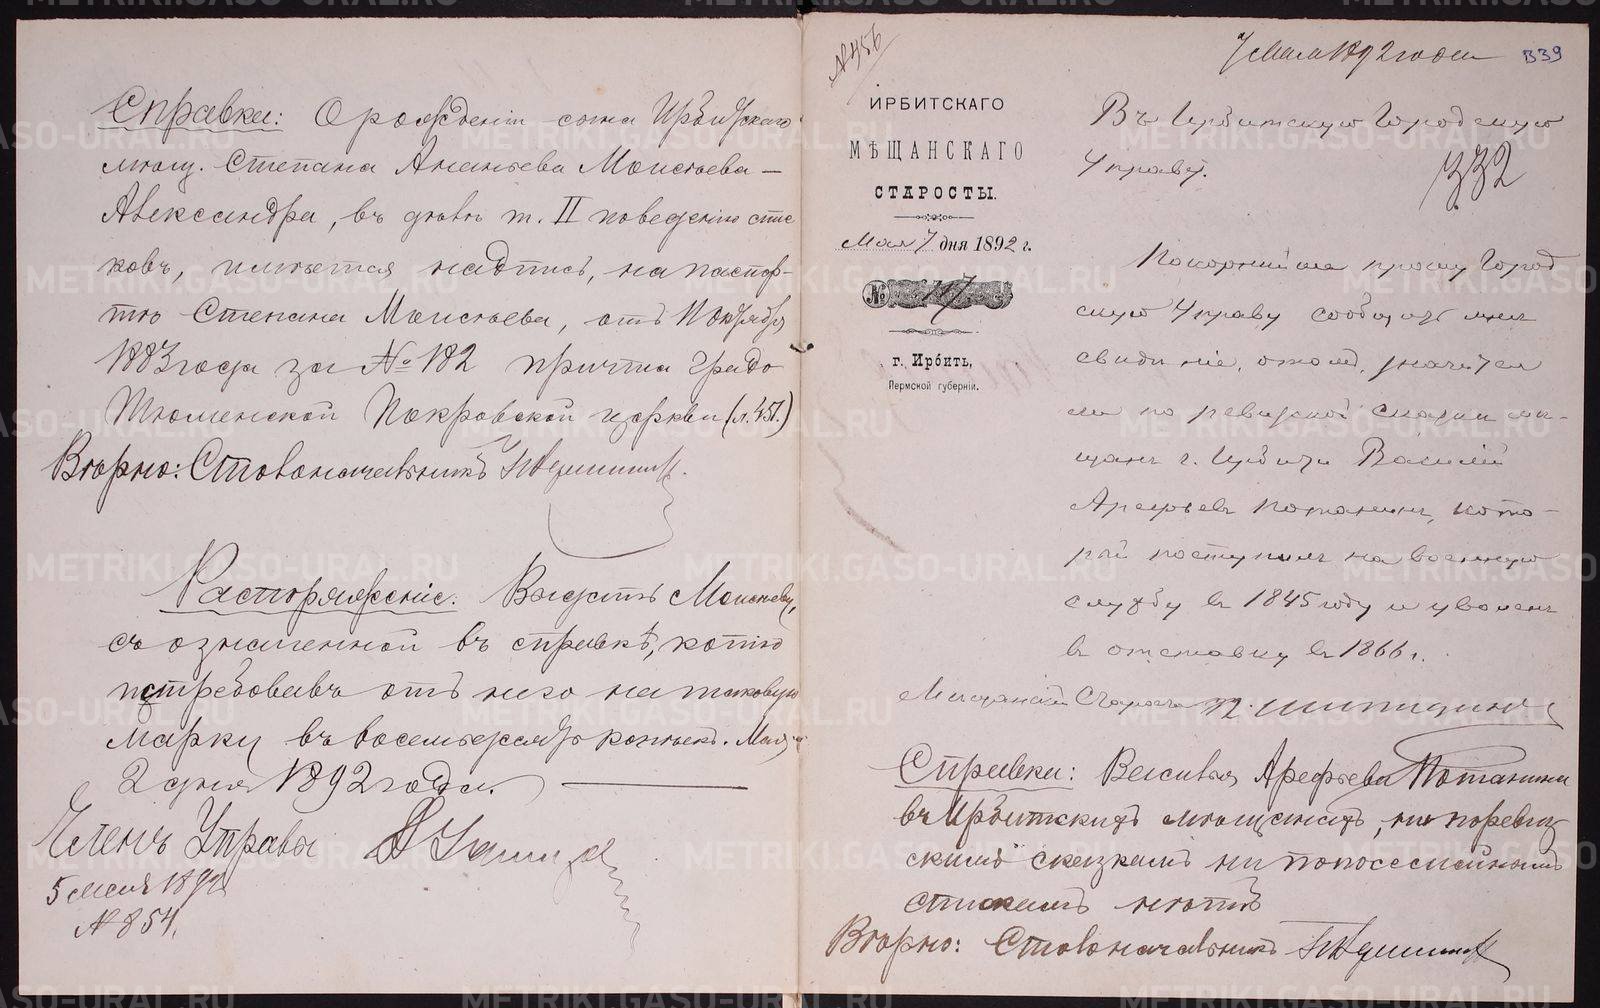 Справка: О рожденіи сына Ирбитскаго
мѣщ. Степана Ананьева Моисѣева —
Александра, въ дѣлѣ т. II по веденію спис
ковъ, имѣется надпись, на паспор-
тѣ Степана Моисѣева, отъ Ноября
1883 года за № 182 причта градо
Тюменской Покровской церкви (л. 451.)
Вѣрно: Столоначальникъ
Распоряженіе. Выдать Моисѣеву,
съ означенной въ справкѣ, копію
потребовавъ отъ него на таковую
марку въ восемьдесятъ копѣекъ. Мая
2 дня 1892 года.
Членъ Управы
5 мая 1892
№ 854.
№ 456
7 Мая 1892 года 339
ИРБИТСКАГО
МѢЩАНСКАГО
СТАРОСТЫ.
Мая 7 дня 1892 г.
№ 117
г. Ирбитъ,
Пермской губерніи.
Въ Ирбитскую Городскую
Управу.
332
Покорнѣйше прошу Город
скую Управу сообщить мнѣ
свидѣніе, о томъ, значится
ли по ревизской сказки мѣ-
щанъ г. Ирбити Василій
Арефьевъ Потанинъ, кото-
рый поступилъ на военную
службу въ 1845 году и уволенъ
въ отставку въ 1866 г.
Мѣщанскій Староста П. Шипицинъ
Справка: Василья Арефьева Потанина
въ Ирбитскихъ мѣщанахъ, ни по ревиз
скимъ сказкамъ ни по посемейнымъ
спискамъ нѣтъ
Вѣрно: Столоначальникъ
METRIKI.GASO-URAL.RU